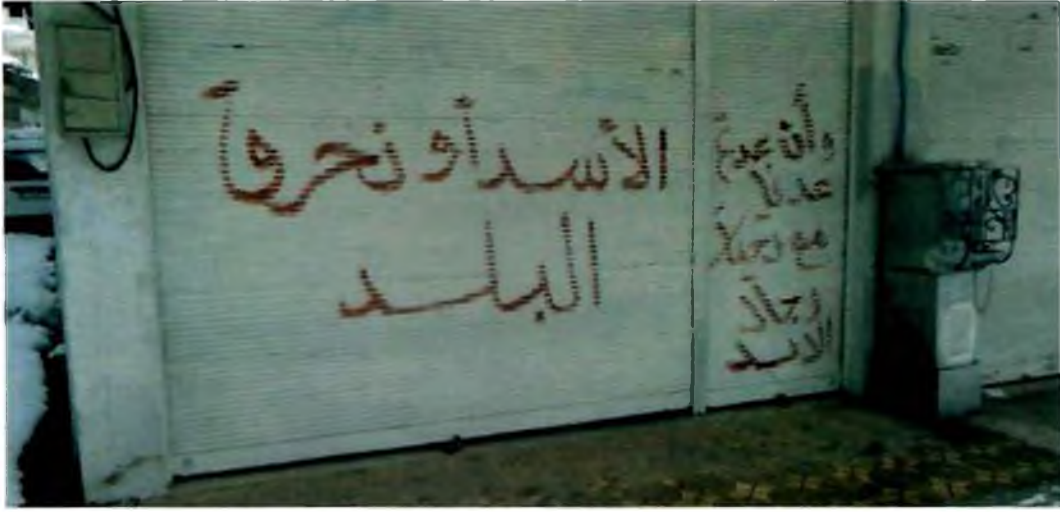 الأسد أو نحرق
البلد
وأن عدتم
عدنا
مع تحيات
رجال
الاسد